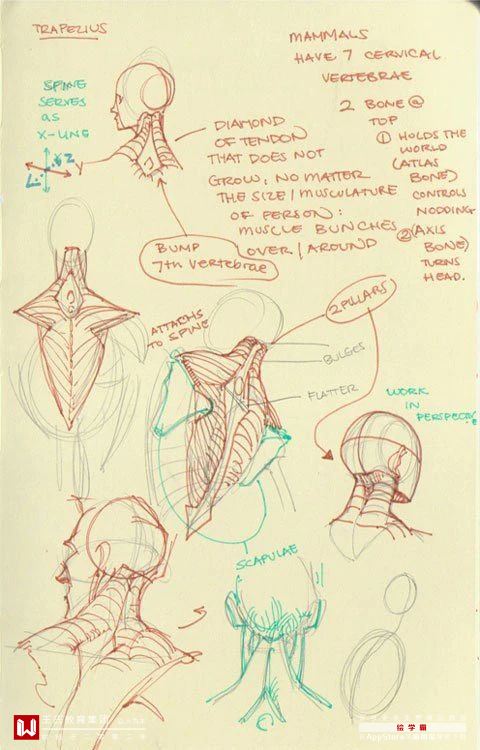 TRAPEZIUS
MAMMALS
HAVE 7 CERVICAL
VERTEBRAE
SPINE
SERVES
as
X-UNG
2 BONE @
TOP
① HOLDS THE
WORLD
(ATLAS
BONE)
CONTROLS
NODDING
② (AXIS
BONE)
TURNS
HEAD.
DIAMOND
OF TENDON
THAT DOES NOT
GROW, NO MATTER
THE SIZE / MUSCULATURE
OF PERSON:
MUSCLE BUNCHES
OVER / AROUND
BUMP
7th VERTEBRAE
2 PILLARS
ATTACHS
TO SPINE
BULGES
FLATTER
WORK
IN
PERSPECTIVE
SCAPULAE
王氏教育集团
绘学霸